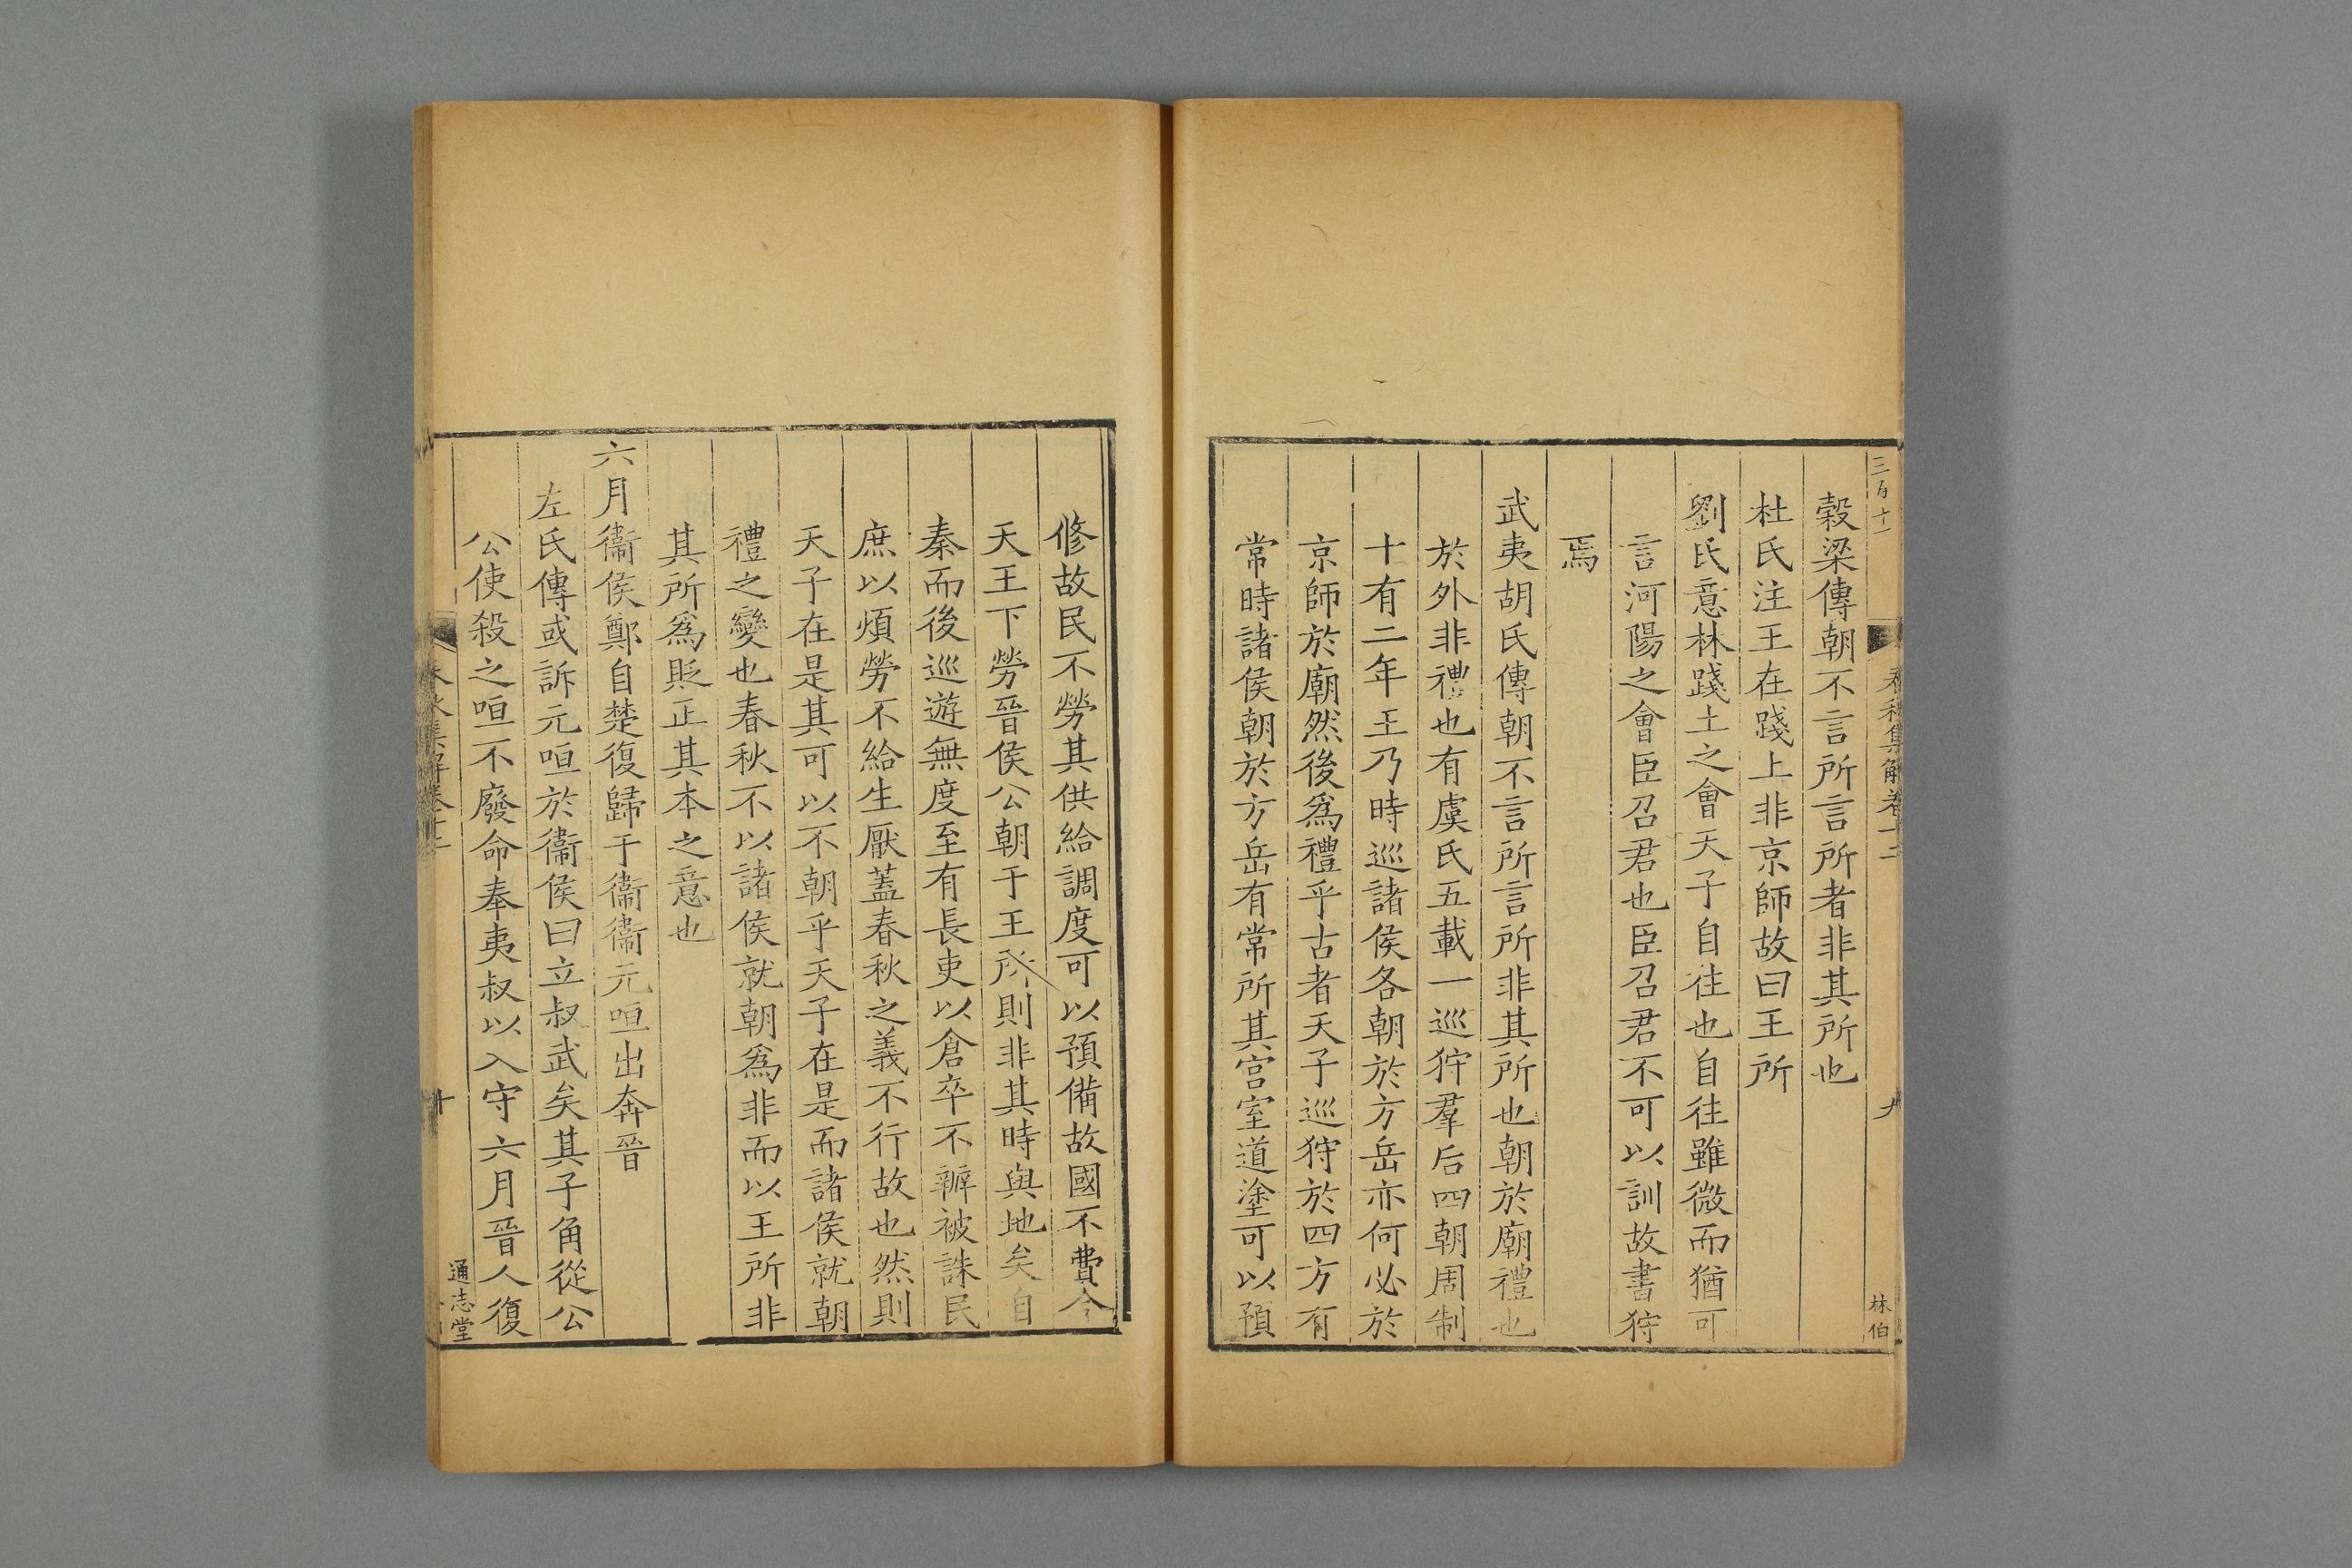 三百十一
春秋集解卷十二
九
林伯
榖梁傳朝不言所言所者非其所也
杜氏注王在踐土非京師故曰王所
劉氏意林踐土之會天子自往也自往雖微而猶可
言河陽之會臣召君也臣召君不可以訓故書狩
焉
武夷胡氏傳朝不言所言所非其所也朝於廟禮也
於外非禮也有虞氏五載一巡狩羣后四朝周制
十有二年王乃時巡諸侯各朝於方岳亦何必於
京師於廟然後爲禮乎古者天子巡狩於四方有
常時諸侯朝於方岳有常所其宫室道塗可以預
修故民不勞其供給調度可以預備故國不費今
天王下勞晉侯公朝于王所則非其時與地矣自
秦而後巡遊無度至有長吏以倉卒不辦被誅民
庶以煩勞不給生厭蓋春秋之義不行故也然則
天子在是其可以不朝乎天子在是而諸侯就朝
禮之變也春秋不以諸侯就朝爲非而以王所非
其所爲貶正其本之意也
六月衞侯鄭自楚復歸于衞衞元咺出奔晉
左氏傳或訴元咺於衞侯曰立叔武矣其子角從公
公使殺之咺不廢命奉夷叔以入守六月晉人復
春秋集解卷十二
十
通志堂